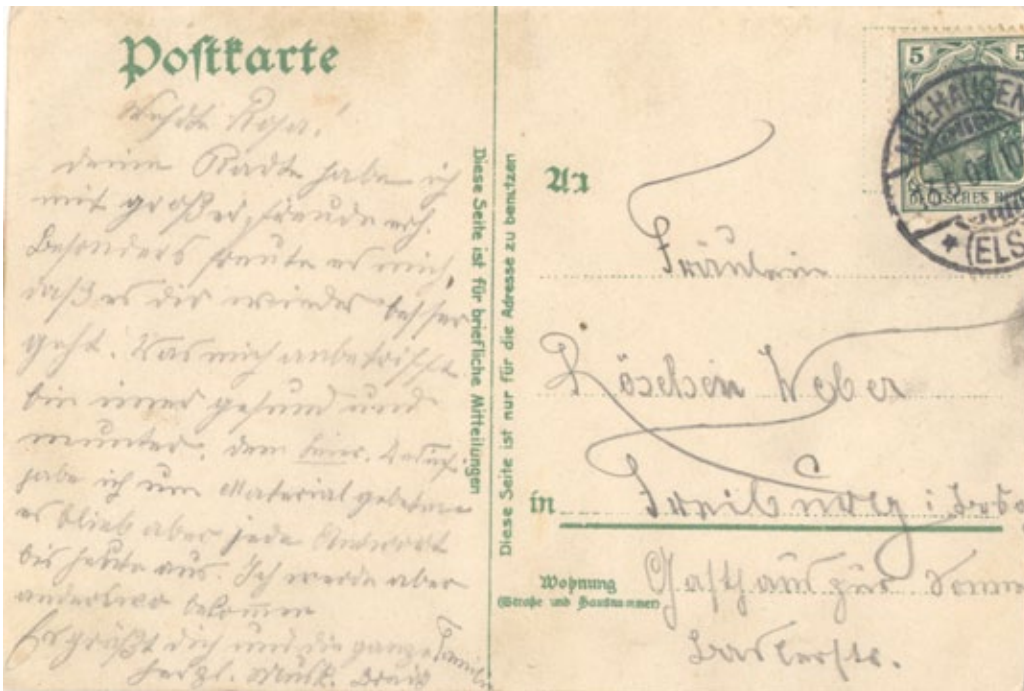 Postkarte
Rosa!
deine Karte habe ich
mit großer Freude erh.
Besonders freute es mich,
daß es dir wieder besser
geht. Was mich anbetrifft
bin immer gesund und
munter. dem
habe ich um Material gebeten
es blieb aber jede Antwort
bis heute aus. Ich werde aber
anderswo bekommen
Es grüßt dich und die ganze Familie
herzl. Musk.
Diese Seite ist für briefliche Mitteilungen
Diese Seite ist nur für die Adresse zu benutzen
An
Fräulein
Röschen Weber
in Freiburg i.
Wohnung
(Straße und Hausnummer)
Gasthaus zur Sonne
Baslerstr.
5 5
DEUTSCHES RE
MÜLHAUSEN
(ELS